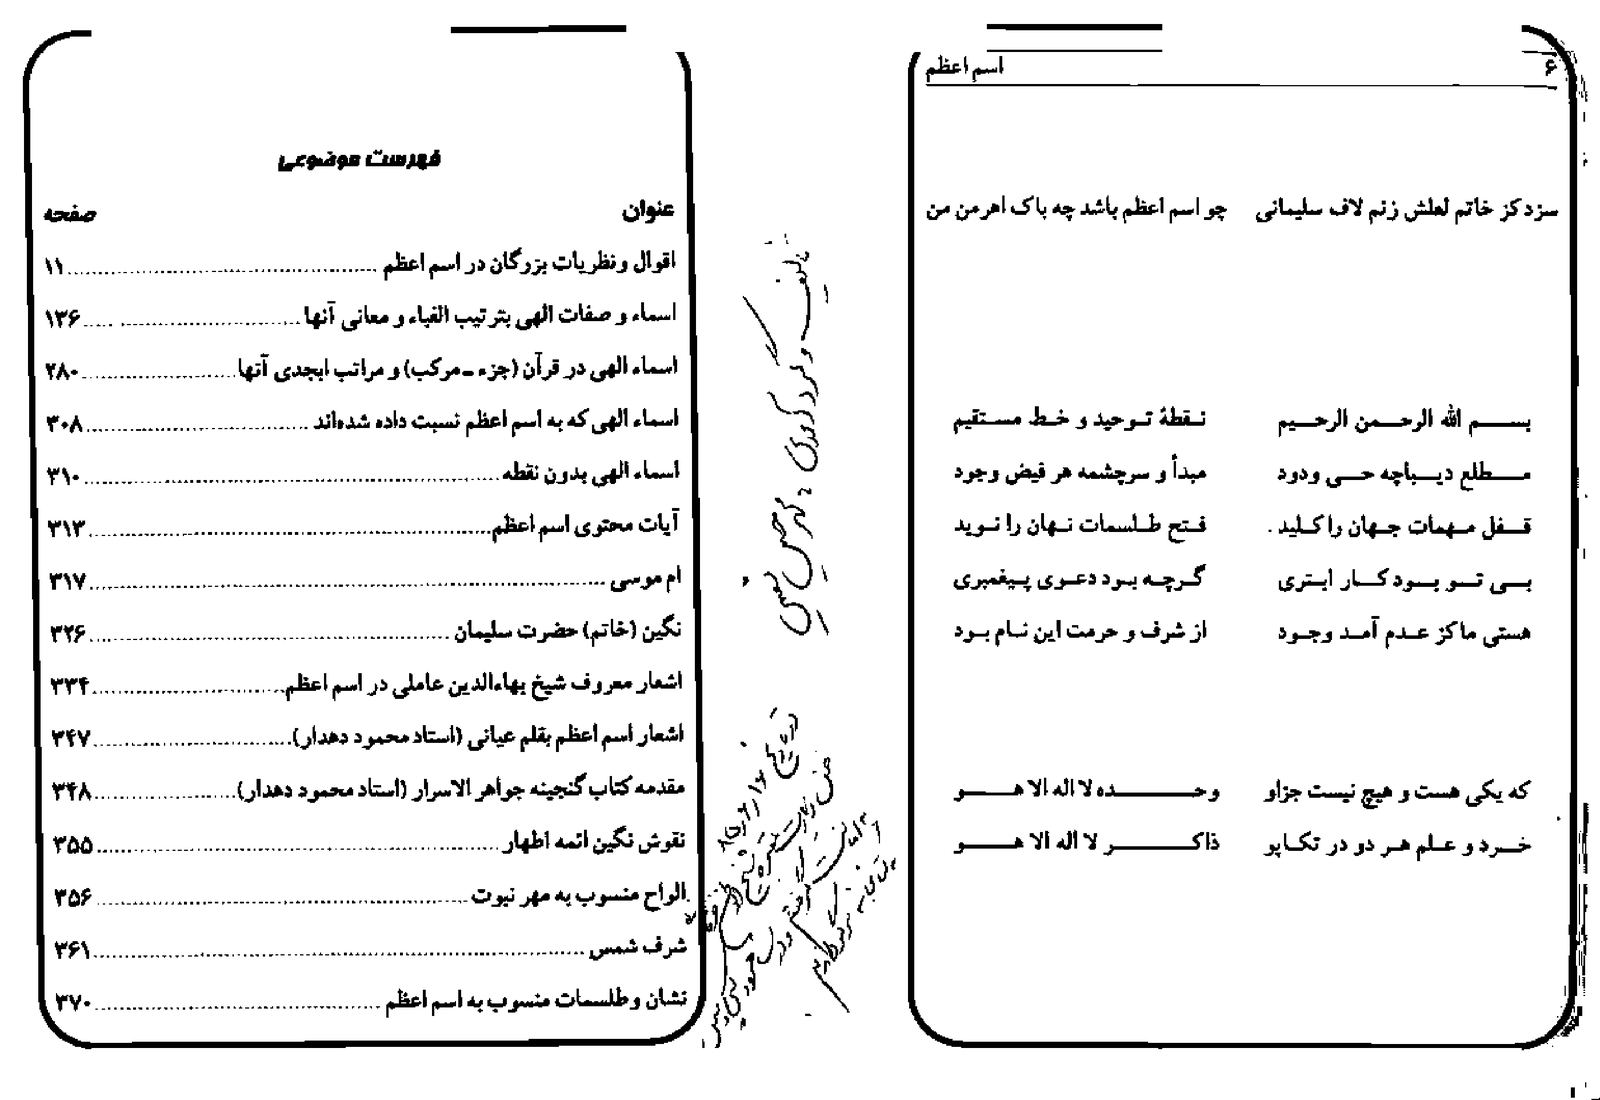 ۶
اسم اعظم
سزد کز خاتم لعلش زنم لاف سلیمانی چو اسم اعظم باشد چه باک اهرمن من
بسم الله الرحمن الرحیم نقطهٔ توحید و خط مستقیم
مطلع دیباچه حی ودود مبدأ و سرچشمه هر فیض وجود
قفل مهمات جهان را کلید. فتح طلسمات نهان را نوید
بی تو بود کار ابتری گرچه بود دعوی پیغمبری
هستی ما کز عدم آمد وجود از شرف و حرمت این نام بود
که یکی هست و هیچ نیست جزاو وحده لا اله الا هو
خرد و علم هر دو در تکاپو ذاکر لا اله الا هو
تألیف و گردآوری
فهرست موضوعی
عنوان صفحه
اقوال ونظریات بزرگان در اسم اعظم ۱۱
اسماء و صفات الهی بترتیب الفباء و معانی آنها ۱۳۶
اسماء الهی در قرآن (جزء ـ مرکب) و مراتب ابجدی آنها ۲۸۰
اسماء الهی که به اسم اعظم نسبت داده شده‌اند ۳۰۸
اسماء الهی بدون نقطه ۳۱۰
آیات محتوی اسم اعظم ۳۱۳
ام موسی ۳۱۷
نگین (خاتم) حضرت سلیمان ۳۲۶
اشعار معروف شیخ بهاءالدین عاملی در اسم اعظم ۳۳۴
اشعار اسم اعظم بقلم عیانی (استاد محمود دهدار) ۳۴۷
مقدمه کتاب گنجینه جواهر الاسرار (استاد محمود دهدار) ۳۴۸
نقوش نگین ائمه اطهار ۳۵۵
الواح منسوب به مهر نبوت ۳۵۶
شرف شمس ۳۶۱
نشان وطلسمات منسوب به اسم اعظم ۳۷۰